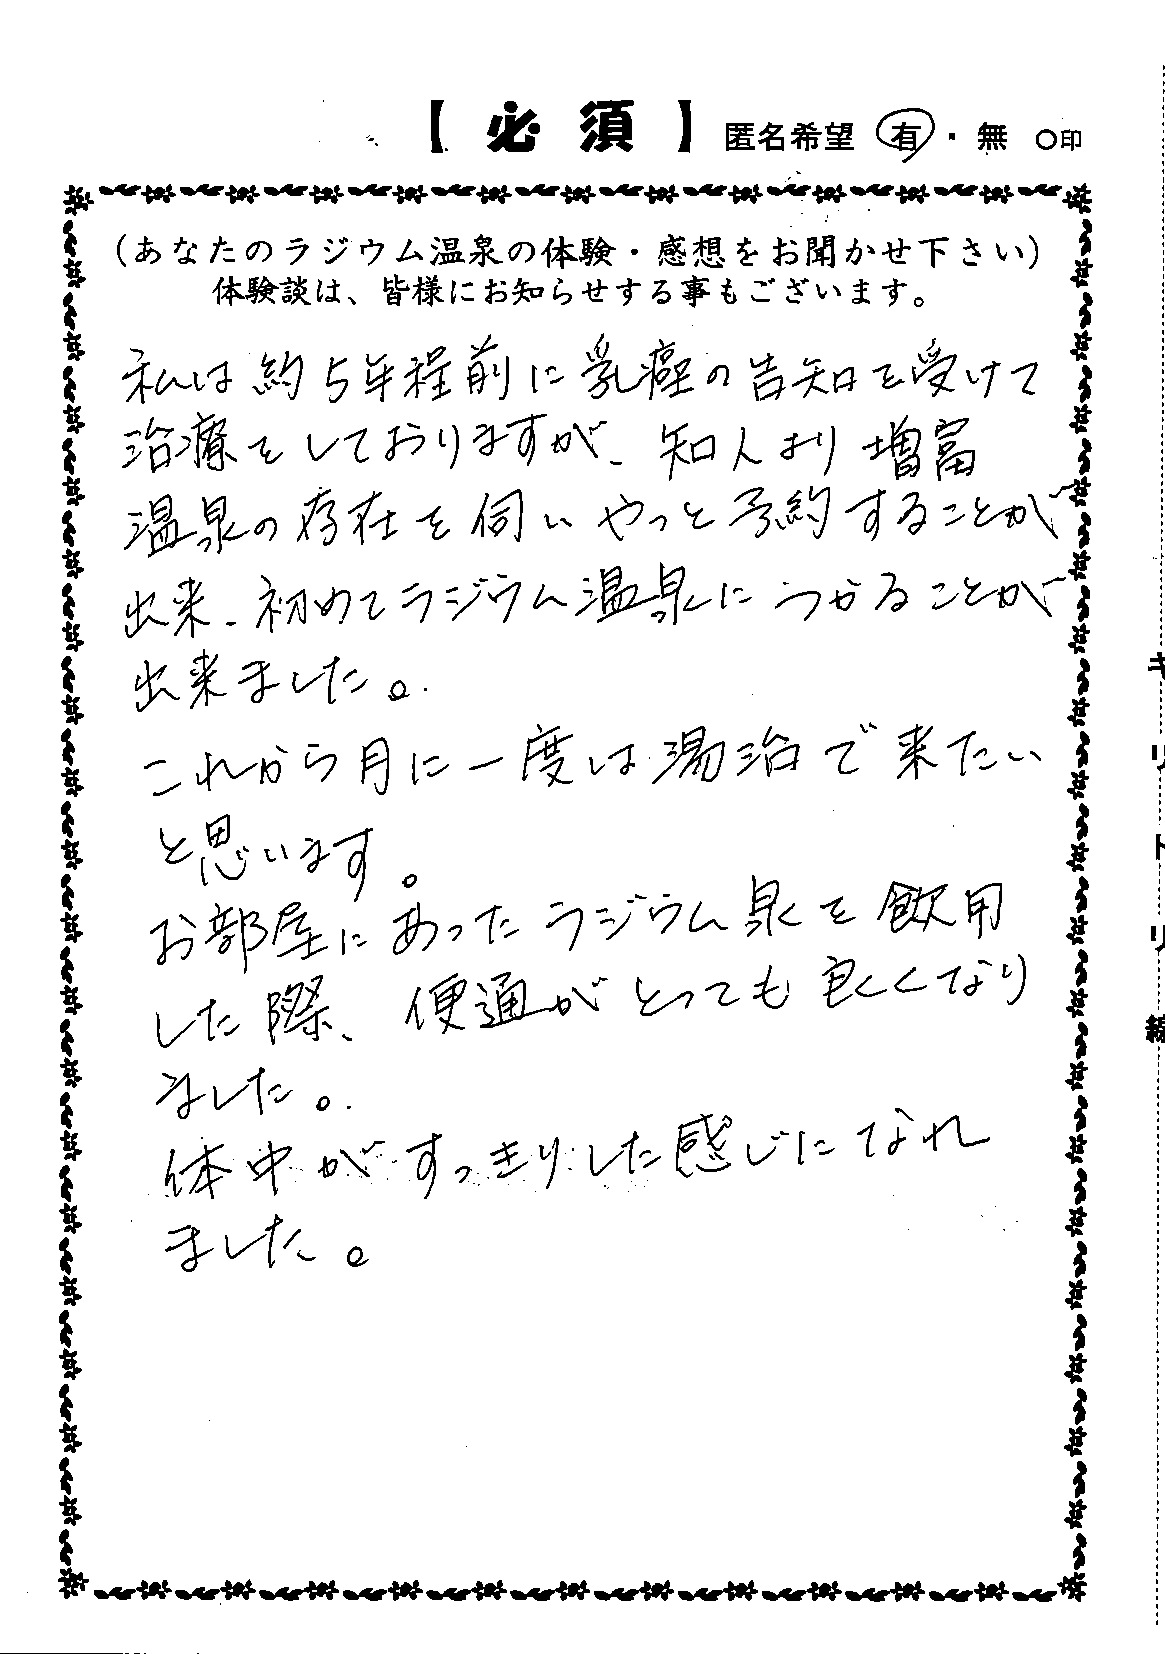 【必須】 匿名希望 有・無 ○印
(あなたのラジウム温泉の体験・感想をお聞かせ下さい)
体験談は、皆様にお知らせする事もございます。
私は約5年程前に乳癌の告知を受けて
治療をしておりますが、知人より増富
温泉の存在を伺いやっと予約することが
出来、初めてラジウム温泉につかることが
出来ました。
これから月に一度は湯治で来たい
と思います。
お部屋にあったラジウム泉を飲用
した際、便通がとっても良くなり
ました。
体中がすっきりした感じになれ
ました。
キリトリ線